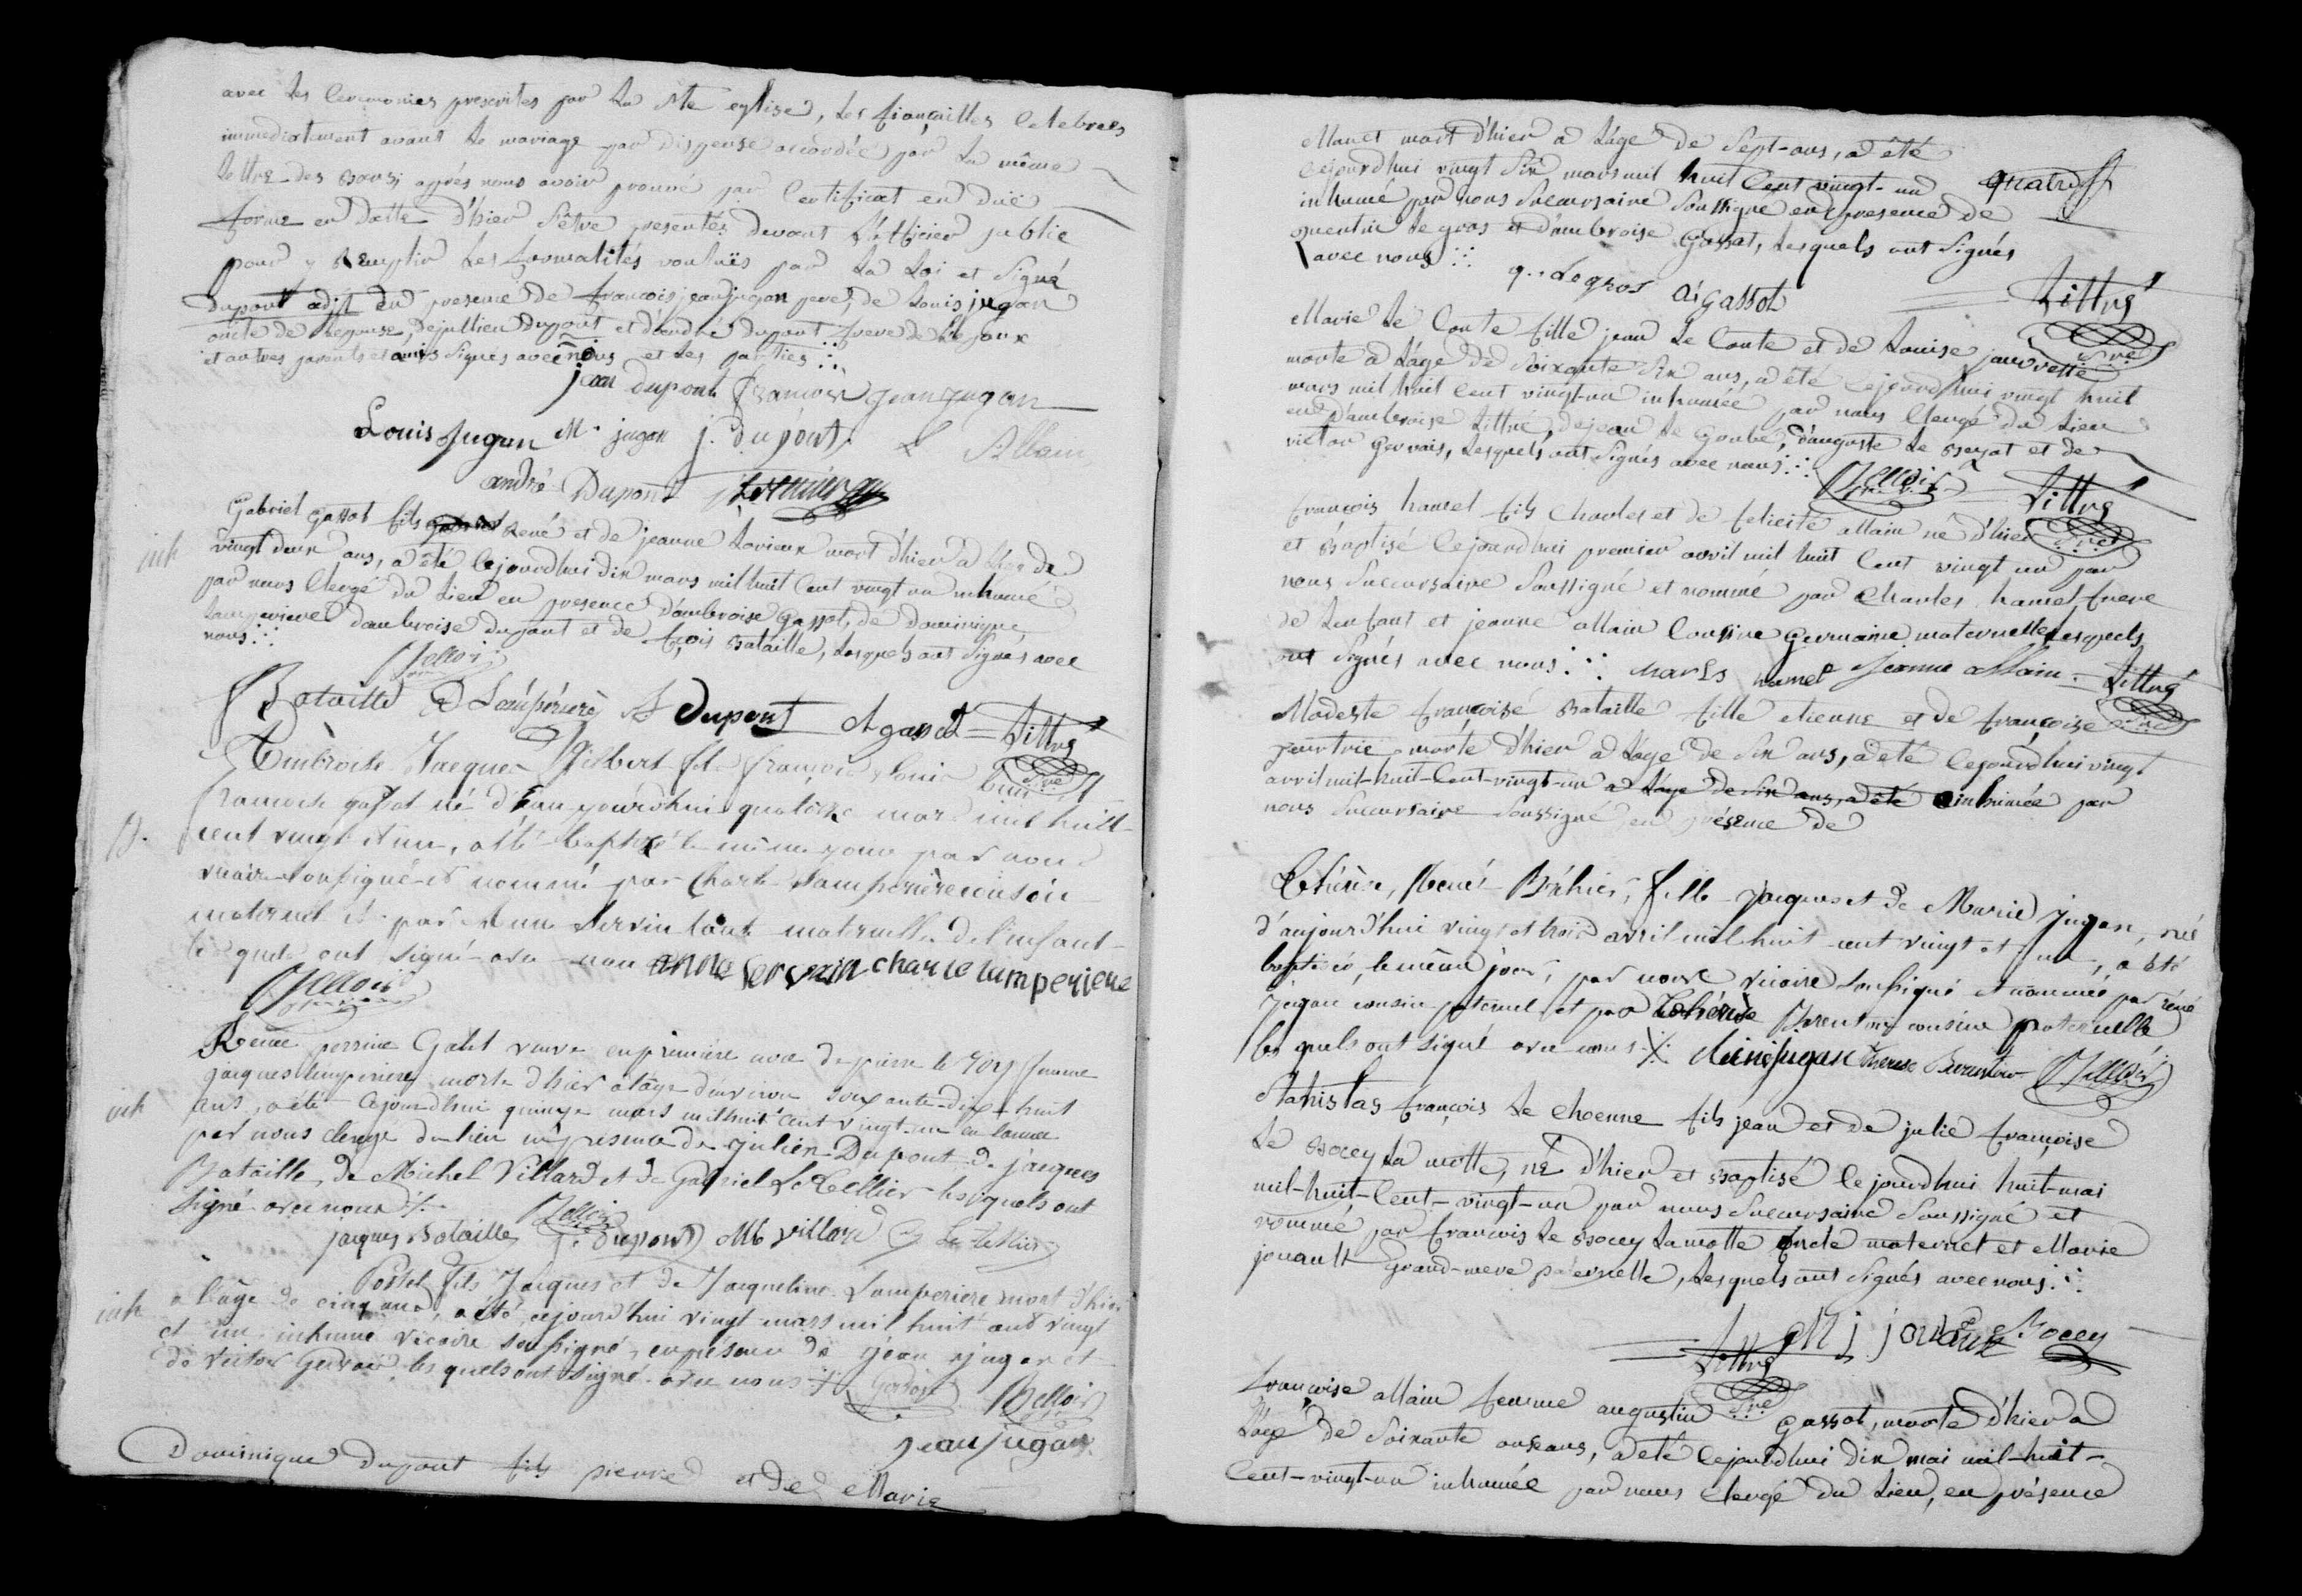 avec les ceremonies prescrites par la Ste eglise, les fiançailles celebrees
immediatement avant le mariage par dispense accordée par la même
lettre des Bans; apprés nous avoir prouvé par certificat en düe
forme en datte d'hier s'être presentés devant l'officier public
pour y remplir les formalités vouluës par la loi et signé
dupont adjt en presence de francois jean jugan pere, de Louis jugan
oncle de l'epouse, de jullien Dupont et d'andré dupont frere de l'epoux
et autres parents et amis signés avec nous et les parties
jean dupont françois jean jugan
Louis Jugan M. jugan j. dupont L Allain
andré Dupont
inh
Gabriel gassot fils René et de jeanne Lorieux mort d'hier à l'age de
vingt deux ans, a été cejourdhui dix mars mil huit cent vingt un inhumé
par nous clergé du lieu en presence d'ambroise Gassot, de dominique
Lamperiere d'ambroise dupont et de fçois Bataille, lesquels ont signés avec
nous
Bellois
f Bataille D Lampérière A dupont A gassot Littré
Sre
B.
Ambroise Jacques Gilbert fils françois Louis et de
francoise gassot né d'aujourd'hui quatorze mars mil huit
cent vingt et un, a été baptisé le même jour par nous
vicaire soussigné et nommé par Charle Lamperière cousin
maternel et par Anne Servin tante maternelle de l'enfant
lesquels ont signé avec nous anne servain charle lamperiere
Bellois
inh
Renée perrine Galet veuve en première noce de pierre le Roy femme
jacques lamperiere morte d'hier a l'age d'environ soixante-dix-huit
ans, a été cejourd'hui quinze mars mil huit cent vingt-un inhumée
par nous clergé du lieu en présence de julien Dupont de jacques
Bataille, de Michel Villard et de Gabriel Le Tellier lesquels ont
signé avec nous
jacques Bataille Bellois j. dupont M Villard G Le tellier
inh
Postel fils Jacques et de Jacqueline Lamperiere mort d'hier
a l'âge de cinq ans, a été cejourd'hui vingt mars mil huit cent vingt
et un inhumé vicaire soussigné, en présence de jean jugan et
de Victor Gervais, lesquels ont signé avec nous Gervais Bellois
jean jugan
Dominique dupont fils pierre et de Marie
Manet mort d'hier a l'âge de sept-ans, a été
cejourdhui vingt six mars mil huit cent vingt-un
inhumé par nous succursaire soussigné en presence de quatre
quentin le gros et d'ambroise Gassot, lesquels ont signés
avec nous
q. Legros A Gassot Littré
Sre
Marie Le Conte fille jean Le Conte et de Louise
morte a l'âge de soixante six ans, a été cejourdhui vingt huit
mars mil huit cent vingt-un inhumée par nous clergé du lieu
en d'ambroise Littré, de jean le Goubé, d'auguste le et de
victor gervais, lesquels ont signés avec nous
Bellois Littré
Sre
françois hamel fils charles et de felicité allain né d'hier
et Baptisé cejourdhui premier avril mil huit cent vingt un par
nous succursaire soussigné et nommé par Charles hamel frere
de l'enfant et jeanne allain cousine germaine maternelle lesquels
ont signés avec nous charls hamel Jeanne allain Littré
Sre
Modeste françoise Bataille fille etienne et de françoise
morte d'hier a l'âge de six ans, a été cejourdhui vingt
avril mil-huit-cent-vingt-un a l'âge de six ans, a été inhumée par
nous succursaire soussigné en présence de
Thérèse, René Béhier, fille Jacques et de Marie Jugan, née
d'aujourd'hui vingt et trois avril mil huit cent vingt et un, a été
baptisée le même jour, par nous vicaire soussigné et nommée par réné
Jugan cousin paternel et par Thérèse Parentm cousine paternelle
les quels ont signé avec nous René jugan Therese Bellois
Stanislas françois Le cheenne fils jean et de julie françoise
Le Bocey la motte, né d'hier et Baptisé cejourdhui huit-mai
mil-huit-cent-vingt-un par nous succursaire soussigné et
nommé par françois le Bocey Lamotte oncle maternel et Marie
jouault Grand-mere paternelle, lesquels ont signés avec nous
Littré M j jouault Bocey
Sre
françoise allain femme augustin Gassot, morte d'hier a
l'âge de soixante onse ans, a été cejourdhui dix mai mil-huit-
cent-vingt-un inhumée par nous clergé du lieu, en présence